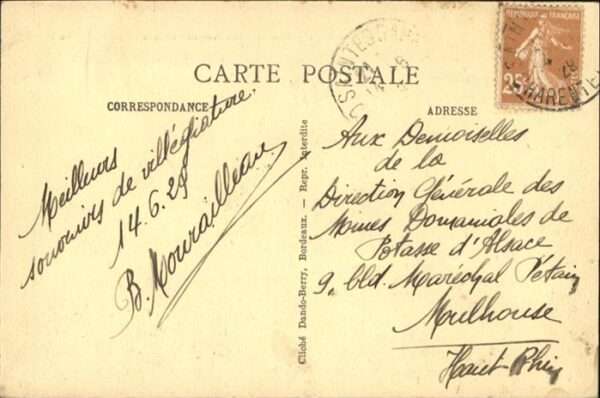 CARTE POSTALE
CORRESPONDANCE
Meilleurs
souvenirs de villégiature.
14.6.28
B. Mourailleau
Cliché Dando-Berry, Bordeaux. — Repr. Interdite
RÉPUBLIQUE FRANÇAISE
25c
SAINTES
CHARENTE
ADRESSE
Aux Demoiselles
de la
Direction Générale des
Mines Domaniales de
Potasse d'Alsace
9. bld. Maréchal Pétain
Mulhouse
Haut-Rhin